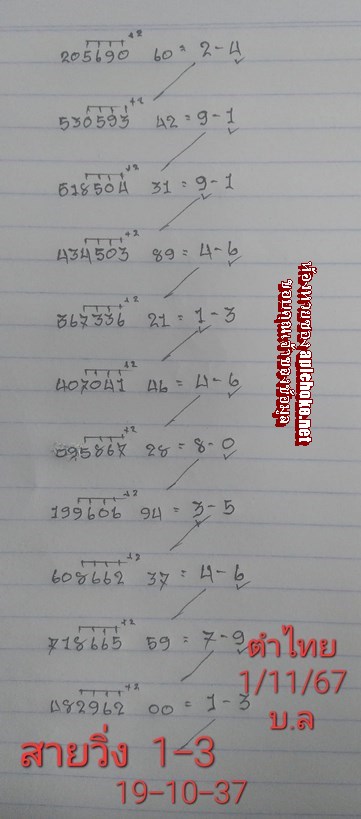 +2
205690 60 = 2-4
+2
530593 42 = 9-1
+2
518504 31 = 9-1
+2
434503 89 = 4-6
+2
367336 21 = 1-3
+2
407041 46 = 4-6
+2
095867 28 = 8-0
+2
199606 94 = 3-5
+2
608662 37 = 4-6
+2
718665 59 = 7-9
+2
482962 00 = 1-3
ตำไทย
1/11/67
บ.ล
สายวิ่ง 1-3
19-10-37
aplchoke.net